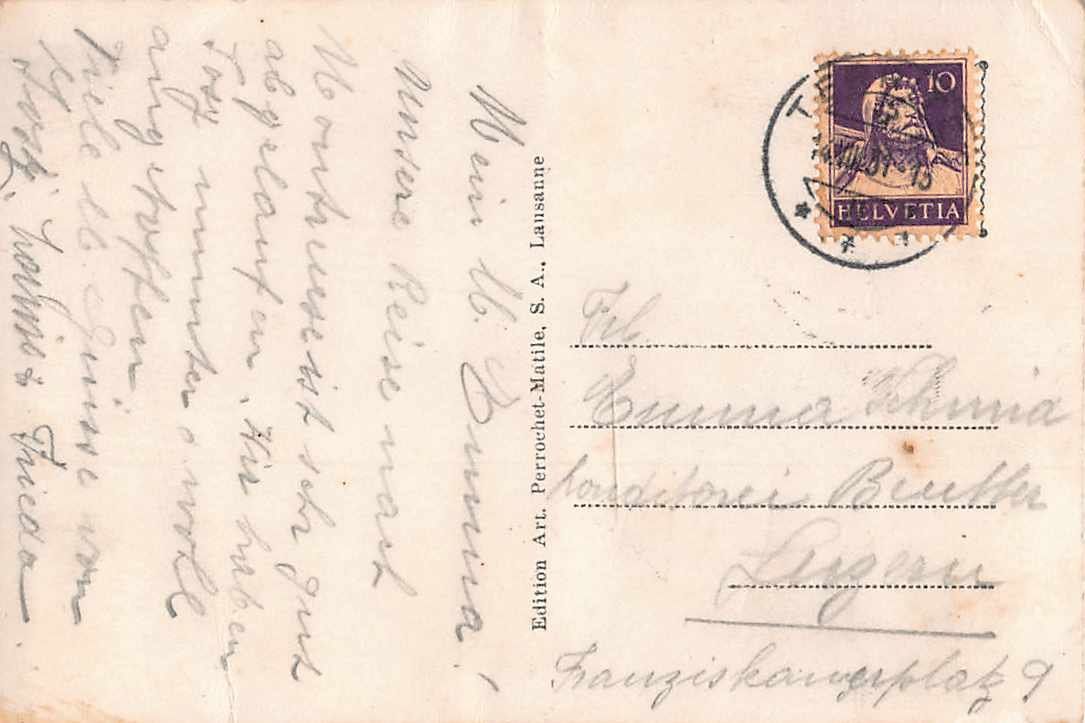 Mein lb. Emma!
Unsere Reise nach
Montreux ist sehr gut
abgelaufen, Wir haben
munter & wohl
angetroffen
Viele lb. Grüsse von
Frieda.
Edition Art. Perrochet-Matile, S. A., Lausanne
10
HELVETIA
Frl.
Emma Schmid
Konditorei
Luzern
Franziskanerplatz 9